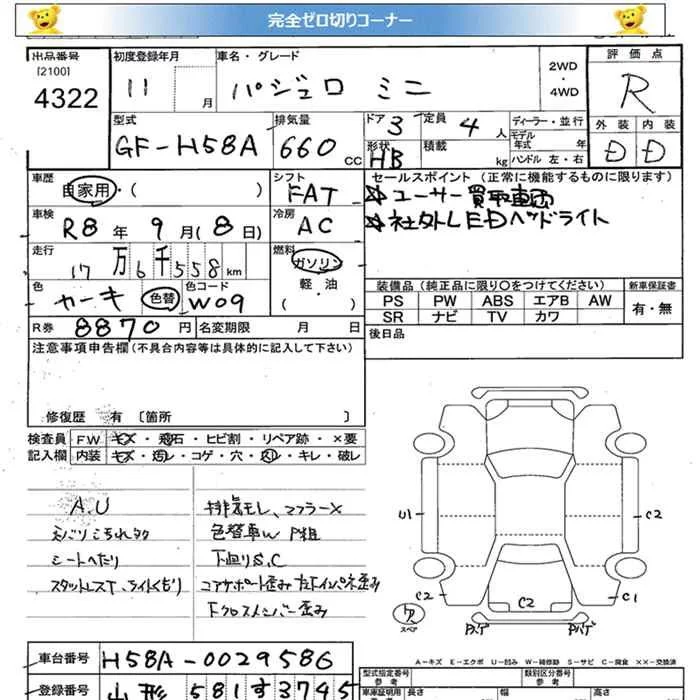 完全ゼロ切りコーナー
出品番号
[2100]
4322
初度登録年月
11 月
車名・グレード
パジェロ ミニ
2WD
・
4WD
評価点
R
型式
GF-H58A
排気量
660 CC
ドア 3
形状 HB
定員 4 人
積載 kg
ディーラー・並行
モデル年式 年
ハンドル 左・右
外装 内装
D D
車歴
自家用・( )
シフト
FAT
セールスポイント (正常に機能するものに限ります)
☆ユーザー買取車両
☆社外LEDヘッドライト
車検
R8 年 9 月 ( 8 日)
冷房
AC
走行
17 万 6 千 558 km
燃料
ガソリン
軽・油
( )
色
カーキ 色替
色コード
W09
装備品 (純正品に限り〇をつけてください)
新車保証書
PS PW ABS エアB AW
SR ナビ TV カワ
有・無
R券 8870 円
名変期限 月 日
後日品
注意事項申告欄 (不具合内容等は具体的に記入して下さい)
修復歴 有 〔箇所 〕
検査員 FW キズ・飛石・ヒビ割・リペア跡・×要
記入欄 内装 キズ・汚レ・コゲ・穴・スレ・キレ・破レ
A.U
シートへたり
スタッドレスT、ライトくもり
排気モレ、マフラー×
色替車W P粗
下廻りS,C
コアサポート歪み
Fクロスメンバー歪み
U1
C2
C2
C2
C1
スペア
Pハゲ
Pハゲ
A-キズ E-エクボ U-凹み W-補修跡 S-サビ C-腐食 ××-交換済
車台番号
H58A-0029586
型式指定番号
類別区分番号
参考
参考
登録番号
山形 581 す 3745
車庫証明用
長さ
幅
高さ